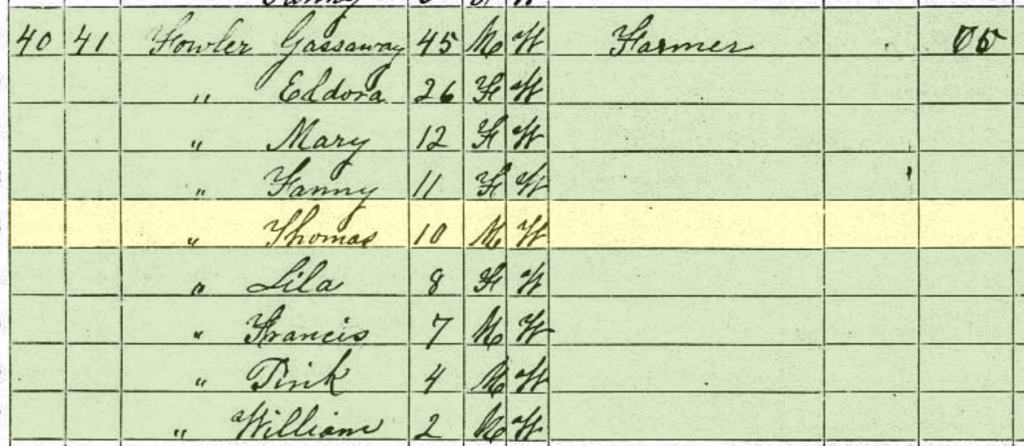 40 41 Fowler Gassaway 45 M W Farmer
" Eldora 26 F W
" Mary 12 F W
" Fanny 11 F W
" Thomas 10 M W
" Lila 8 F W
" Francis 7 M W
" Pink 4 M W
" William 2 M W